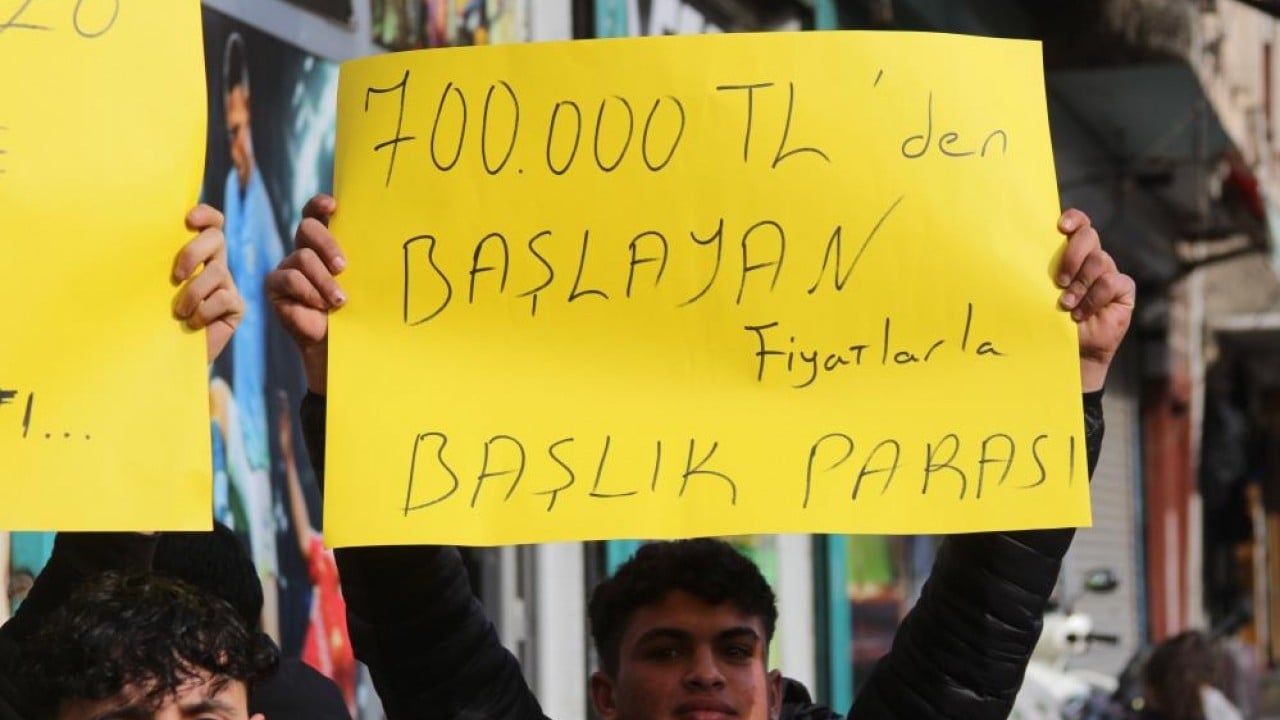 20
700.000 TL'den
BAŞLAYAN
Fiyatlarla
BAŞLIK PARASI